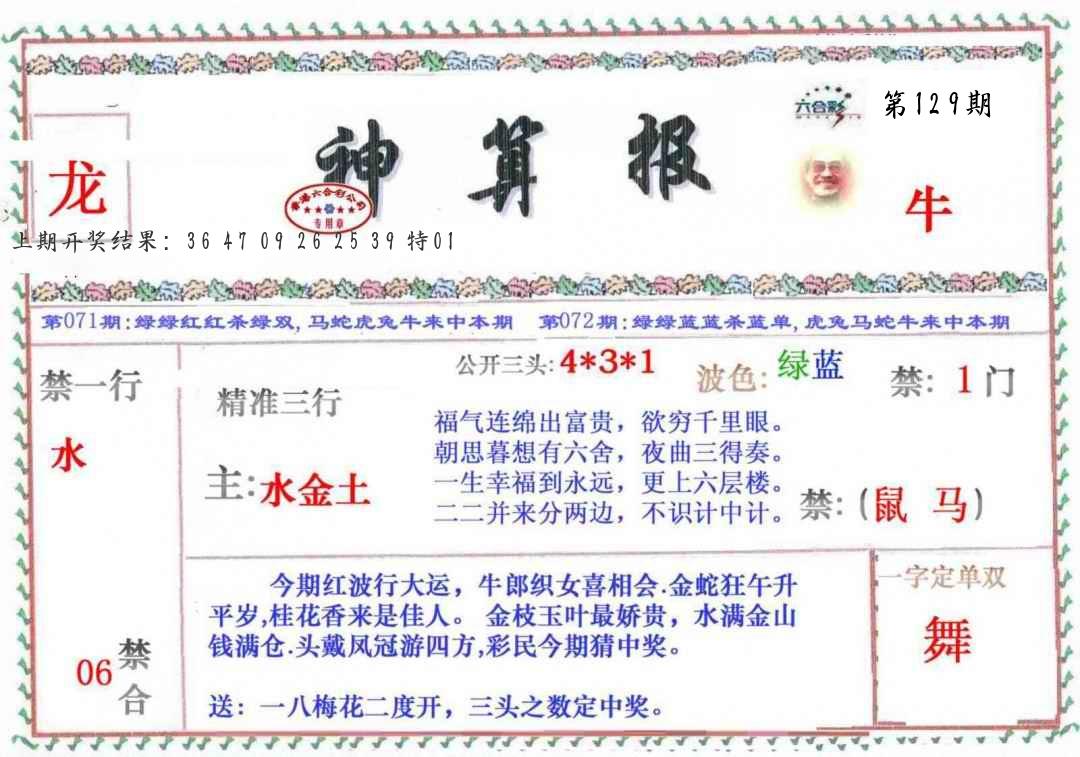 六合彩
第129期
神算报
龙
香港六合彩公司
专用章
牛
上期开奖结果: 36 47 09 26 25 39 特01
第071期:绿绿红红杀绿双,马蛇虎兔牛来中本期 第072期:绿绿蓝蓝杀蓝单,虎兔马蛇牛来中本期
禁一行
水
06
禁合
公开三头:4*3*1
波色: 绿蓝
禁: 1门
精准三行
主:水金土
福气连绵出富贵，欲穷千里眼。
朝思暮想有六舍，夜曲三得奏。
一生幸福到永远，更上六层楼。
二二并来分两边，不识计中计。
禁:(鼠 马)
今期红波行大运，牛郎织女喜相会.金蛇狂午升
平岁,桂花香来是佳人。 金枝玉叶最娇贵，水满金山
钱满仓.头戴凤冠游四方,彩民今期猜中奖。
送：一八梅花二度开，三头之数定中奖。
一字定单双
舞